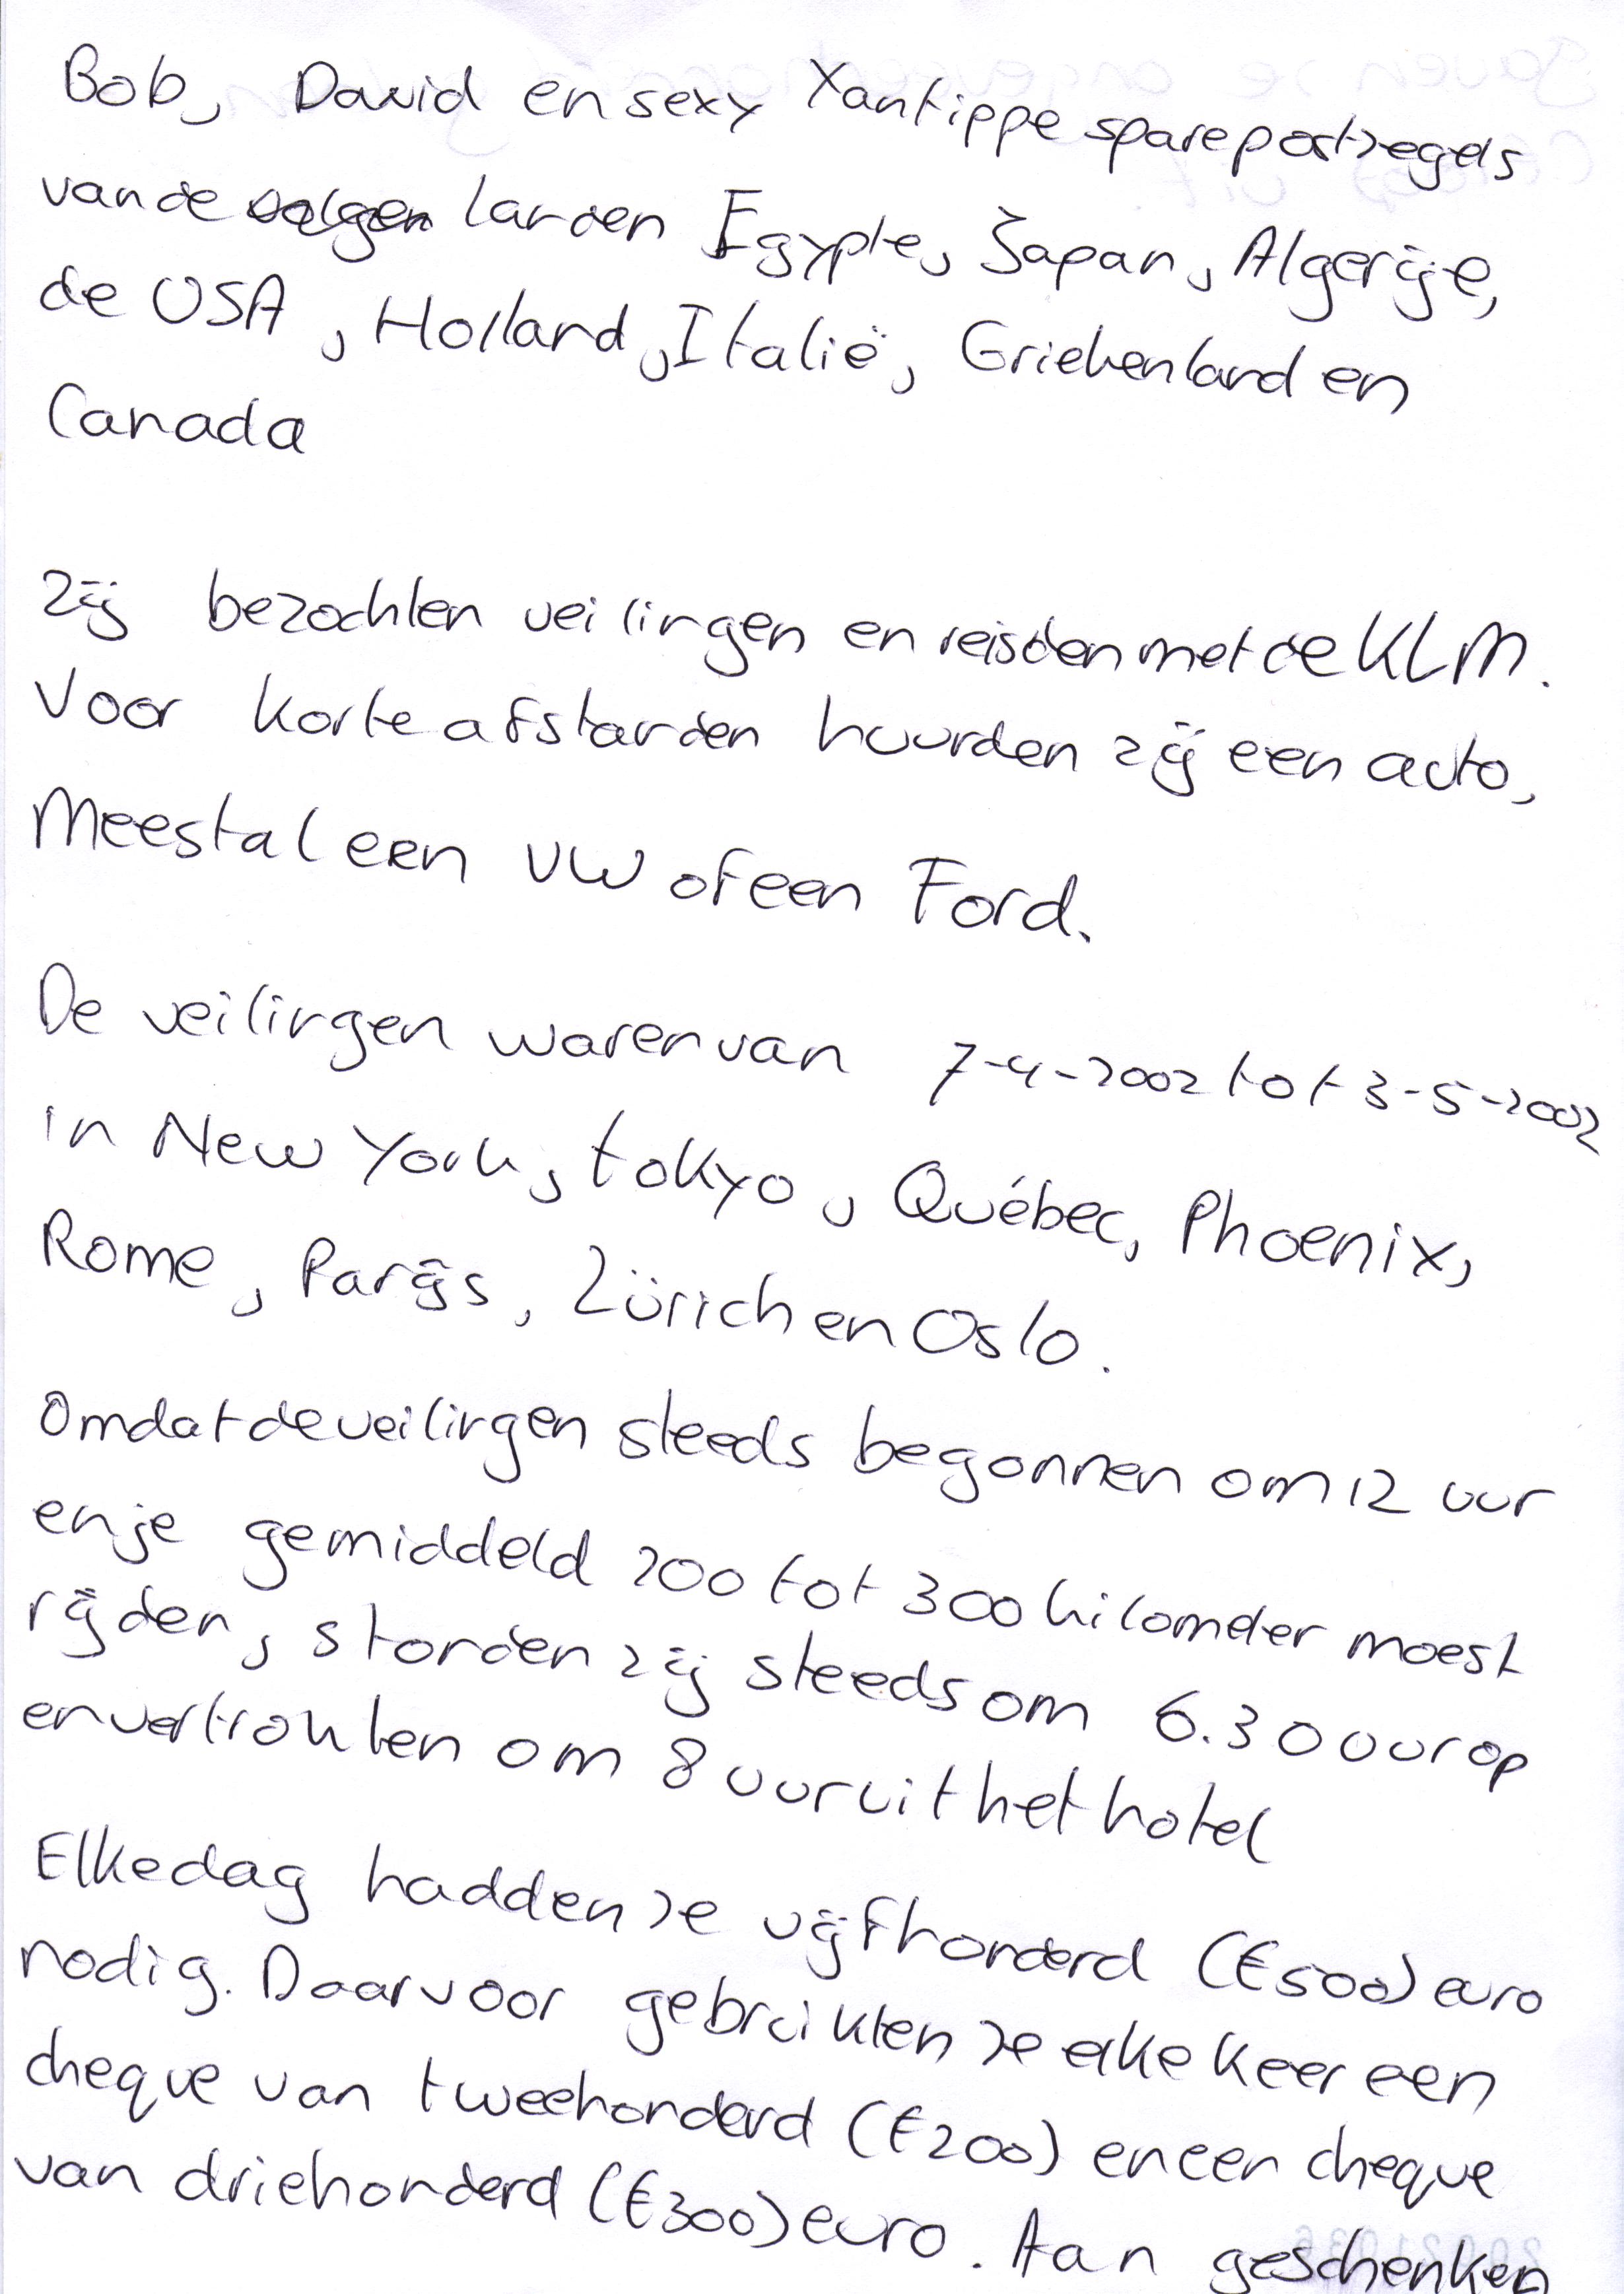 Bob, David en sexy Xantippe spare postzegels
van de volgen landen Egypte, Japan, Algerije,
de USA, Holland, Italië, Griekenland en
Canada
Zij bezochten veilingen en reisden met de KLM.
Voor korte afstanden huurden zij een auto,
Meestal een VW of een Ford.
De veilingen waren van 7-4-2002 tot 3-5-2002
in New York, tokyo, Québec, Phoenix,
Rome, Parijs, Zürich en Oslo.
Omdat de veilingen steeds begonnen om 12 uur
en je gemiddeld 200 tot 300 kilometer moest
rijden, stonden zij steeds om 6.30 uur op
en vertrokken om 8 uur uit het hotel
Elke dag hadden ze vijfhonderd (€500) euro
nodig. Daarvoor gebruikten ze elke keer een
cheque van tweehonderd (€200) en een cheque
van driehonderd (€300) euro. Aan geschenken